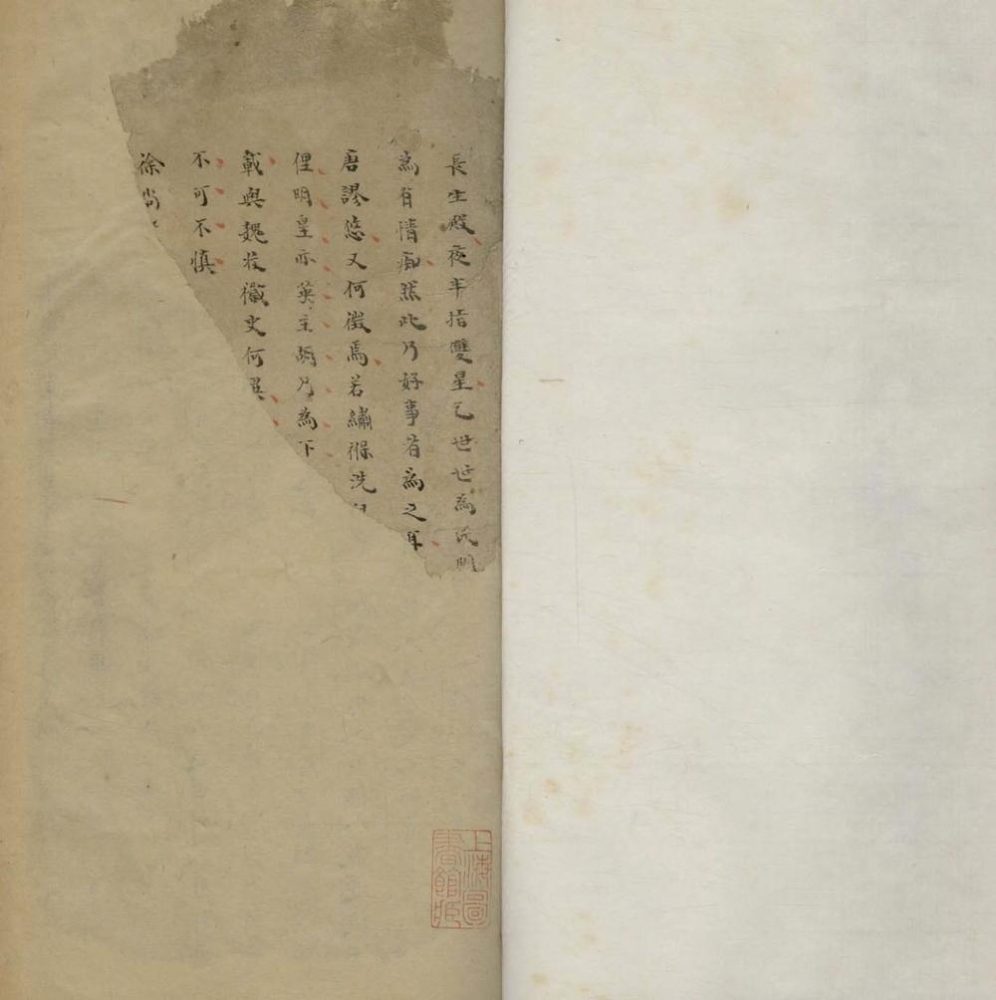 長生殿夜半指雙星乞世世為氏明
為有情癡然此乃好事者為之耳
唐謬悠又何徵焉若繡褓洗
俚明皇亦英主胡乃為下
載與魏收穢史何異
不可不慎
徐尚
上海圖
書館